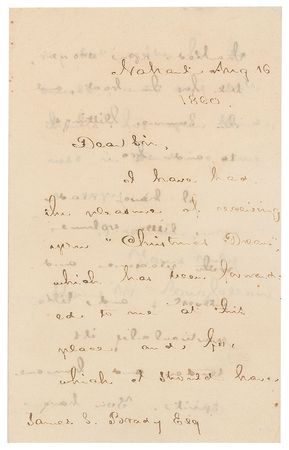 Nahant, Aug 16
1860.
Dear Sir,
I have had
the pleasure of receiving
your "Christmas Dream",
which has been forward-
ed to me at this
place and, for,
which I should have
James T. Brady Esq